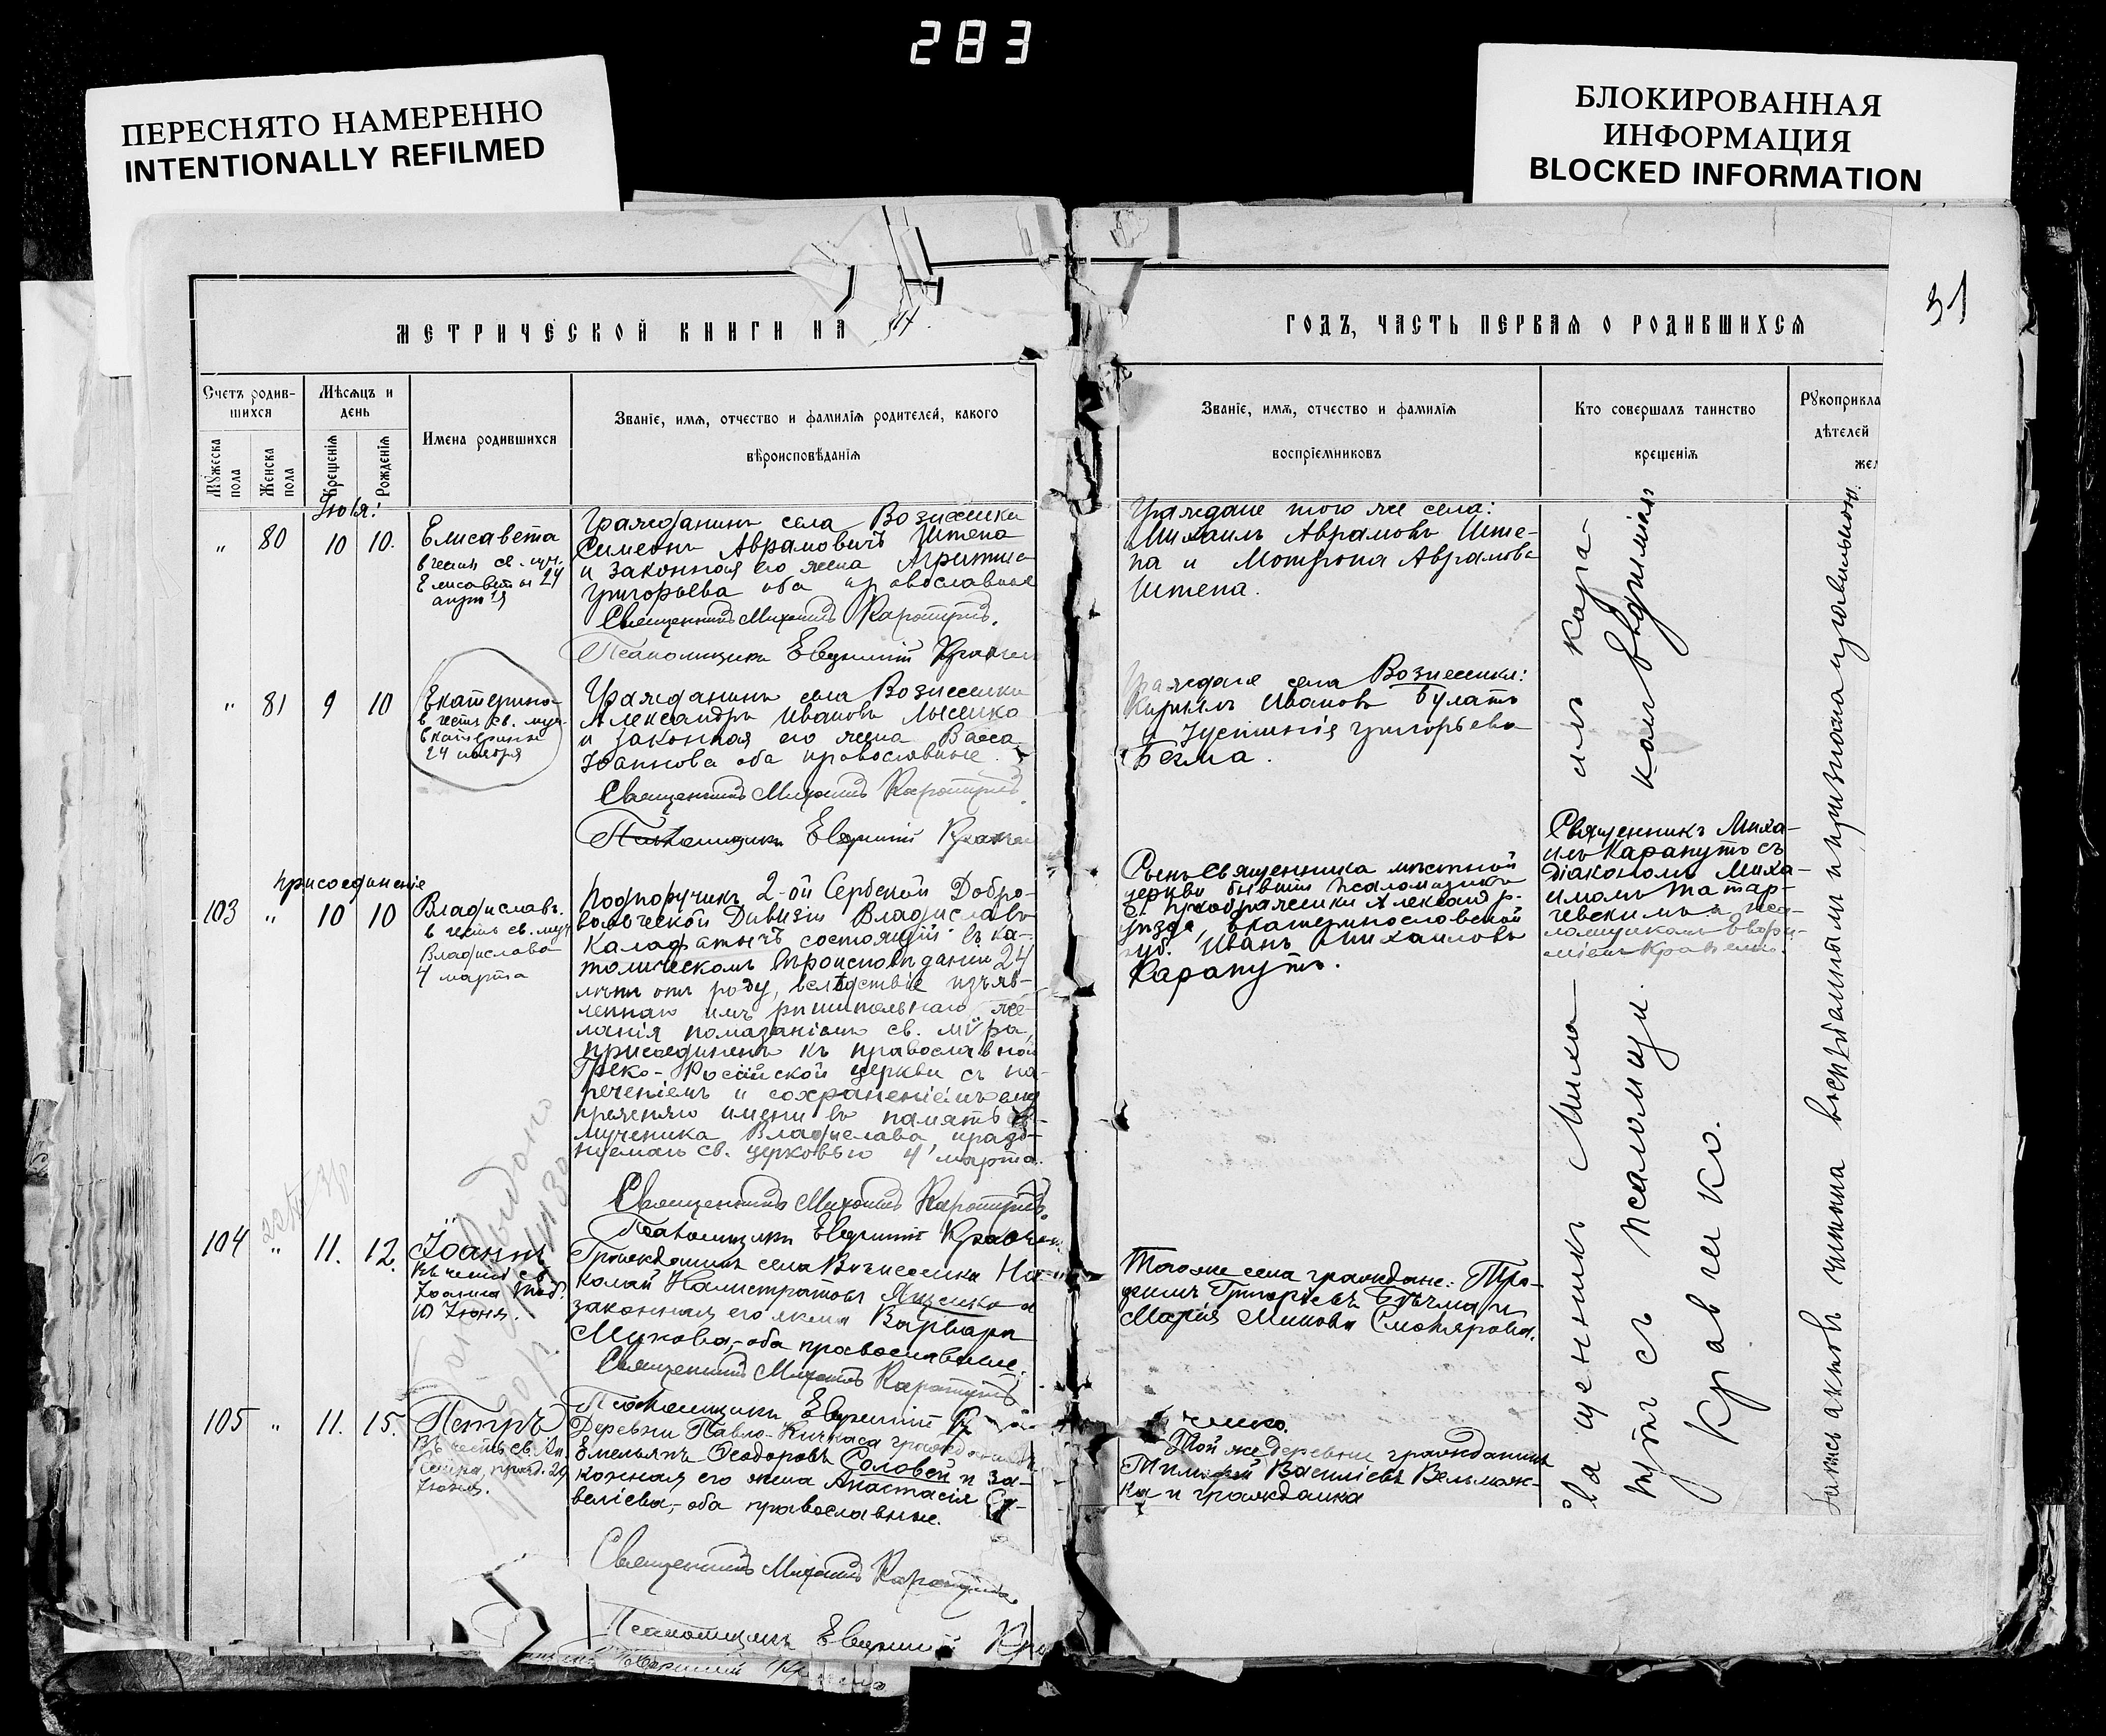 283
ПЕРЕСНЯТО НАМЕРЕННО
INTENTIONALLY REFILMED
БЛОКИРОВАННАЯ
ИНФОРМАЦИЯ
BLOCKED INFORMATION
31
МЕТРИЧЕСКОЙ КНИГИ НА
ГОДЪ, ЧАСТЬ ПЕРВАЯ О РОДИВШИХСЯ
Счетъ родив-
шихся
Мужеска
пола
Женска
пола
Мѣсяцъ и
день
Крещенія
Рожденія
Имена родившихся
Званіе, имя, отчество и фамилія родителей, какого
вѣроисповѣданія
Званіе, имя, отчество и фамилія
воспріемниковъ
Кто совершалъ таинство
крещенія
Рукоприкла
дѣтелей
жел
„ 80 10 10.
Елисавета
в честь св. муч.
Елисаветы 24
Гражданинъ села Вознесенки
Симеонъ Аврамовичъ Штепа
и законная его жена
Григорьева оба православные
Священникъ Михаилъ Карапутъ.
Псаломщикъ Евфимій
Граждане того же села:
Михаилъ Аврамовъ Ште-
па и Мотрона Аврамова
Штепа.
„ 81 9 10
Екатерина
в честь св. муч.
Екатерины
24 ноября
Гражданинъ села Вознесенки
Александръ Ивановъ Лысенко
и законная его жена Васса
Іоаннова оба православные.
Священникъ Михаилъ Карапутъ.
Псаломщикъ Евфимій
Граждане села Вознесенки:
Кириллъ Ивановъ Булатъ
и Іустинія Григорьева
Бегма.
присоединеніе
103 „ 10 10
Владиславъ.
в честь св. муч.
Владислава
4 марта
Подпоручикъ 2-ой Сербской Добро-
вольческой Дивизіи Владиславъ
состоящій въ ка-
толическомъ вѣроисповѣданіи 24
лѣтъ отъ роду, вслѣдствіе изъяв-
леннаго имъ рѣшительнаго же-
ланія помазаніемъ св. мѵра,
присоединенъ къ православной
Греко-Россійской церкви съ на-
реченіемъ и сохраненіемъ ему
прежняго имени въ память св.
мученика Владислава, празд-
нуемаго св. церковью 4 марта.
Священникъ Михаилъ Карапутъ.
Псаломщикъ Евфимій
Сынъ священника мѣстной
церкви бывшій псаломщикъ
с. Преображенки Александр.
уѣзда, Екатеринославской
губ. Иванъ Михаиловъ
Карапутъ.
Священникъ Миха-
илъ Карапутъ съ
діакономъ Миха-
иломъ Татар-
чевскимъ и пса-
ломщикомъ Евфи-
міемъ Кравченко.
104 „ 11. 12.
Іоаннъ
въ честь св.
Іоанна
Іюня.
Гражданинъ села Вознесенки Ни-
колай Калистратовъ Яценко и
законная его жена Варвара
оба православные.
Священникъ Михаилъ Карапутъ
Псаломщикъ Евфимій
Того же села граждане: Тро-
фимъ Григорьевъ Бегма и
Марія Смоляровa.
105 „ 11. 15.
Петръ
въ честь св. Ап.
Петра, празд. 29
Іюня.
Деревни Павло-Кичкаса гражданинъ
Емельянъ Ѳеодоровъ Соловей и за-
конная его жена Анастасія Са-
веліева, оба православные.
Священникъ Михаилъ Карапутъ.
Псаломщикъ Евфимій
Той же деревни гражданинъ
Тимофей Василіевъ Вельмож-
ка и гражданка
Священникъ Миха-
илъ Кара-
путъ съ псаломщи-
комъ Евфиміемъ
Кравченко.